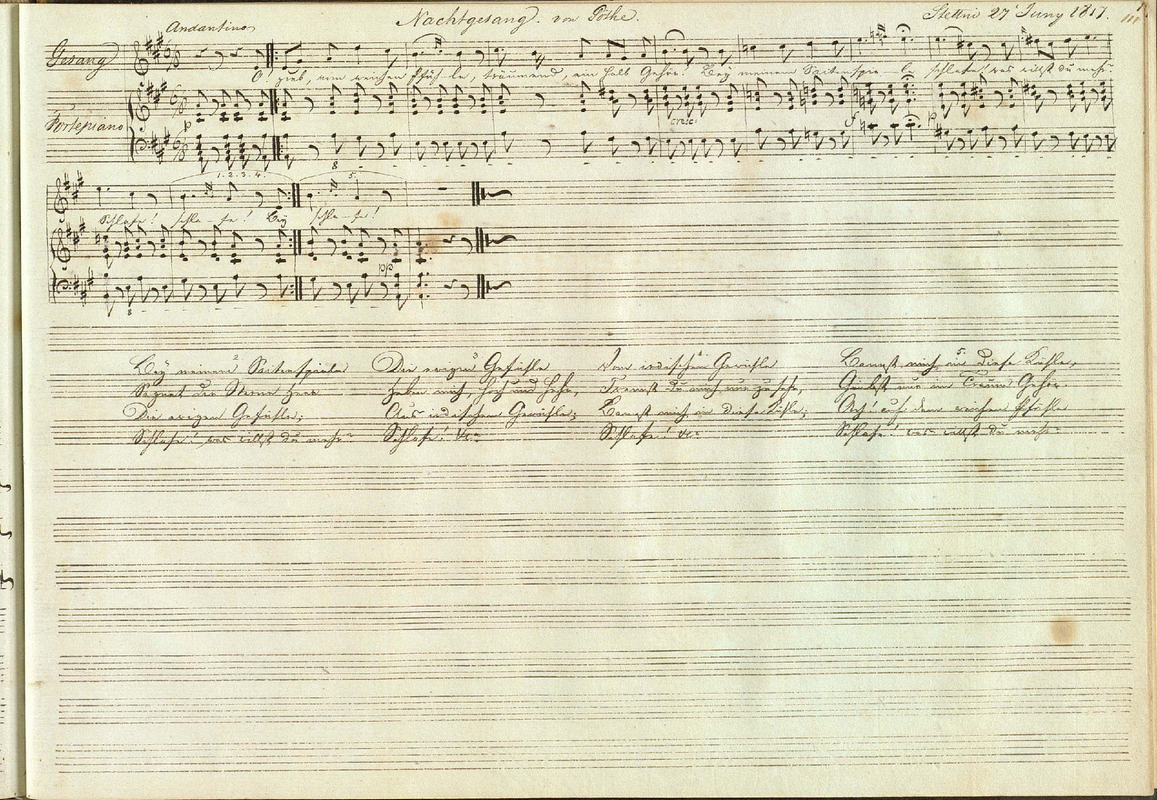 Nachtgesang. von Göthe.
Stettin 27' Juny 1817.
Andantino
Gesang
O! gieb, vom weichen Pfühle, träumend, ein halb Gehör. Bey meinem Saitenspie-le schlafe! was willst du mehr.
Fortepiano
p
cresc:
f
p
8
1. 2. 3. 4.
5.
Schlafe! schla-fe! Bey schla-fe!
pp
8
2
Bey meinem Saitenspiele
Segnet der Sterne Heer
Die ewigen Gefühle;
Schlafe! was willst du mehr?
Die ewigen Gefühle
Heben mich, hoch und hehr,
Aus irdischem Gewühle;
Schlafe! &c:
4
Vom irdischen Gewühle
Trennst du mich nur zu sehr,
Bannst mich in diese Kühle;
Schlafe! &c:
5.
Bannst mich in diese Kühle,
Giebst nur im Traum Gehör.
Ach! auf dem weichen Pfühle
Schlafe! was willst du mehr?